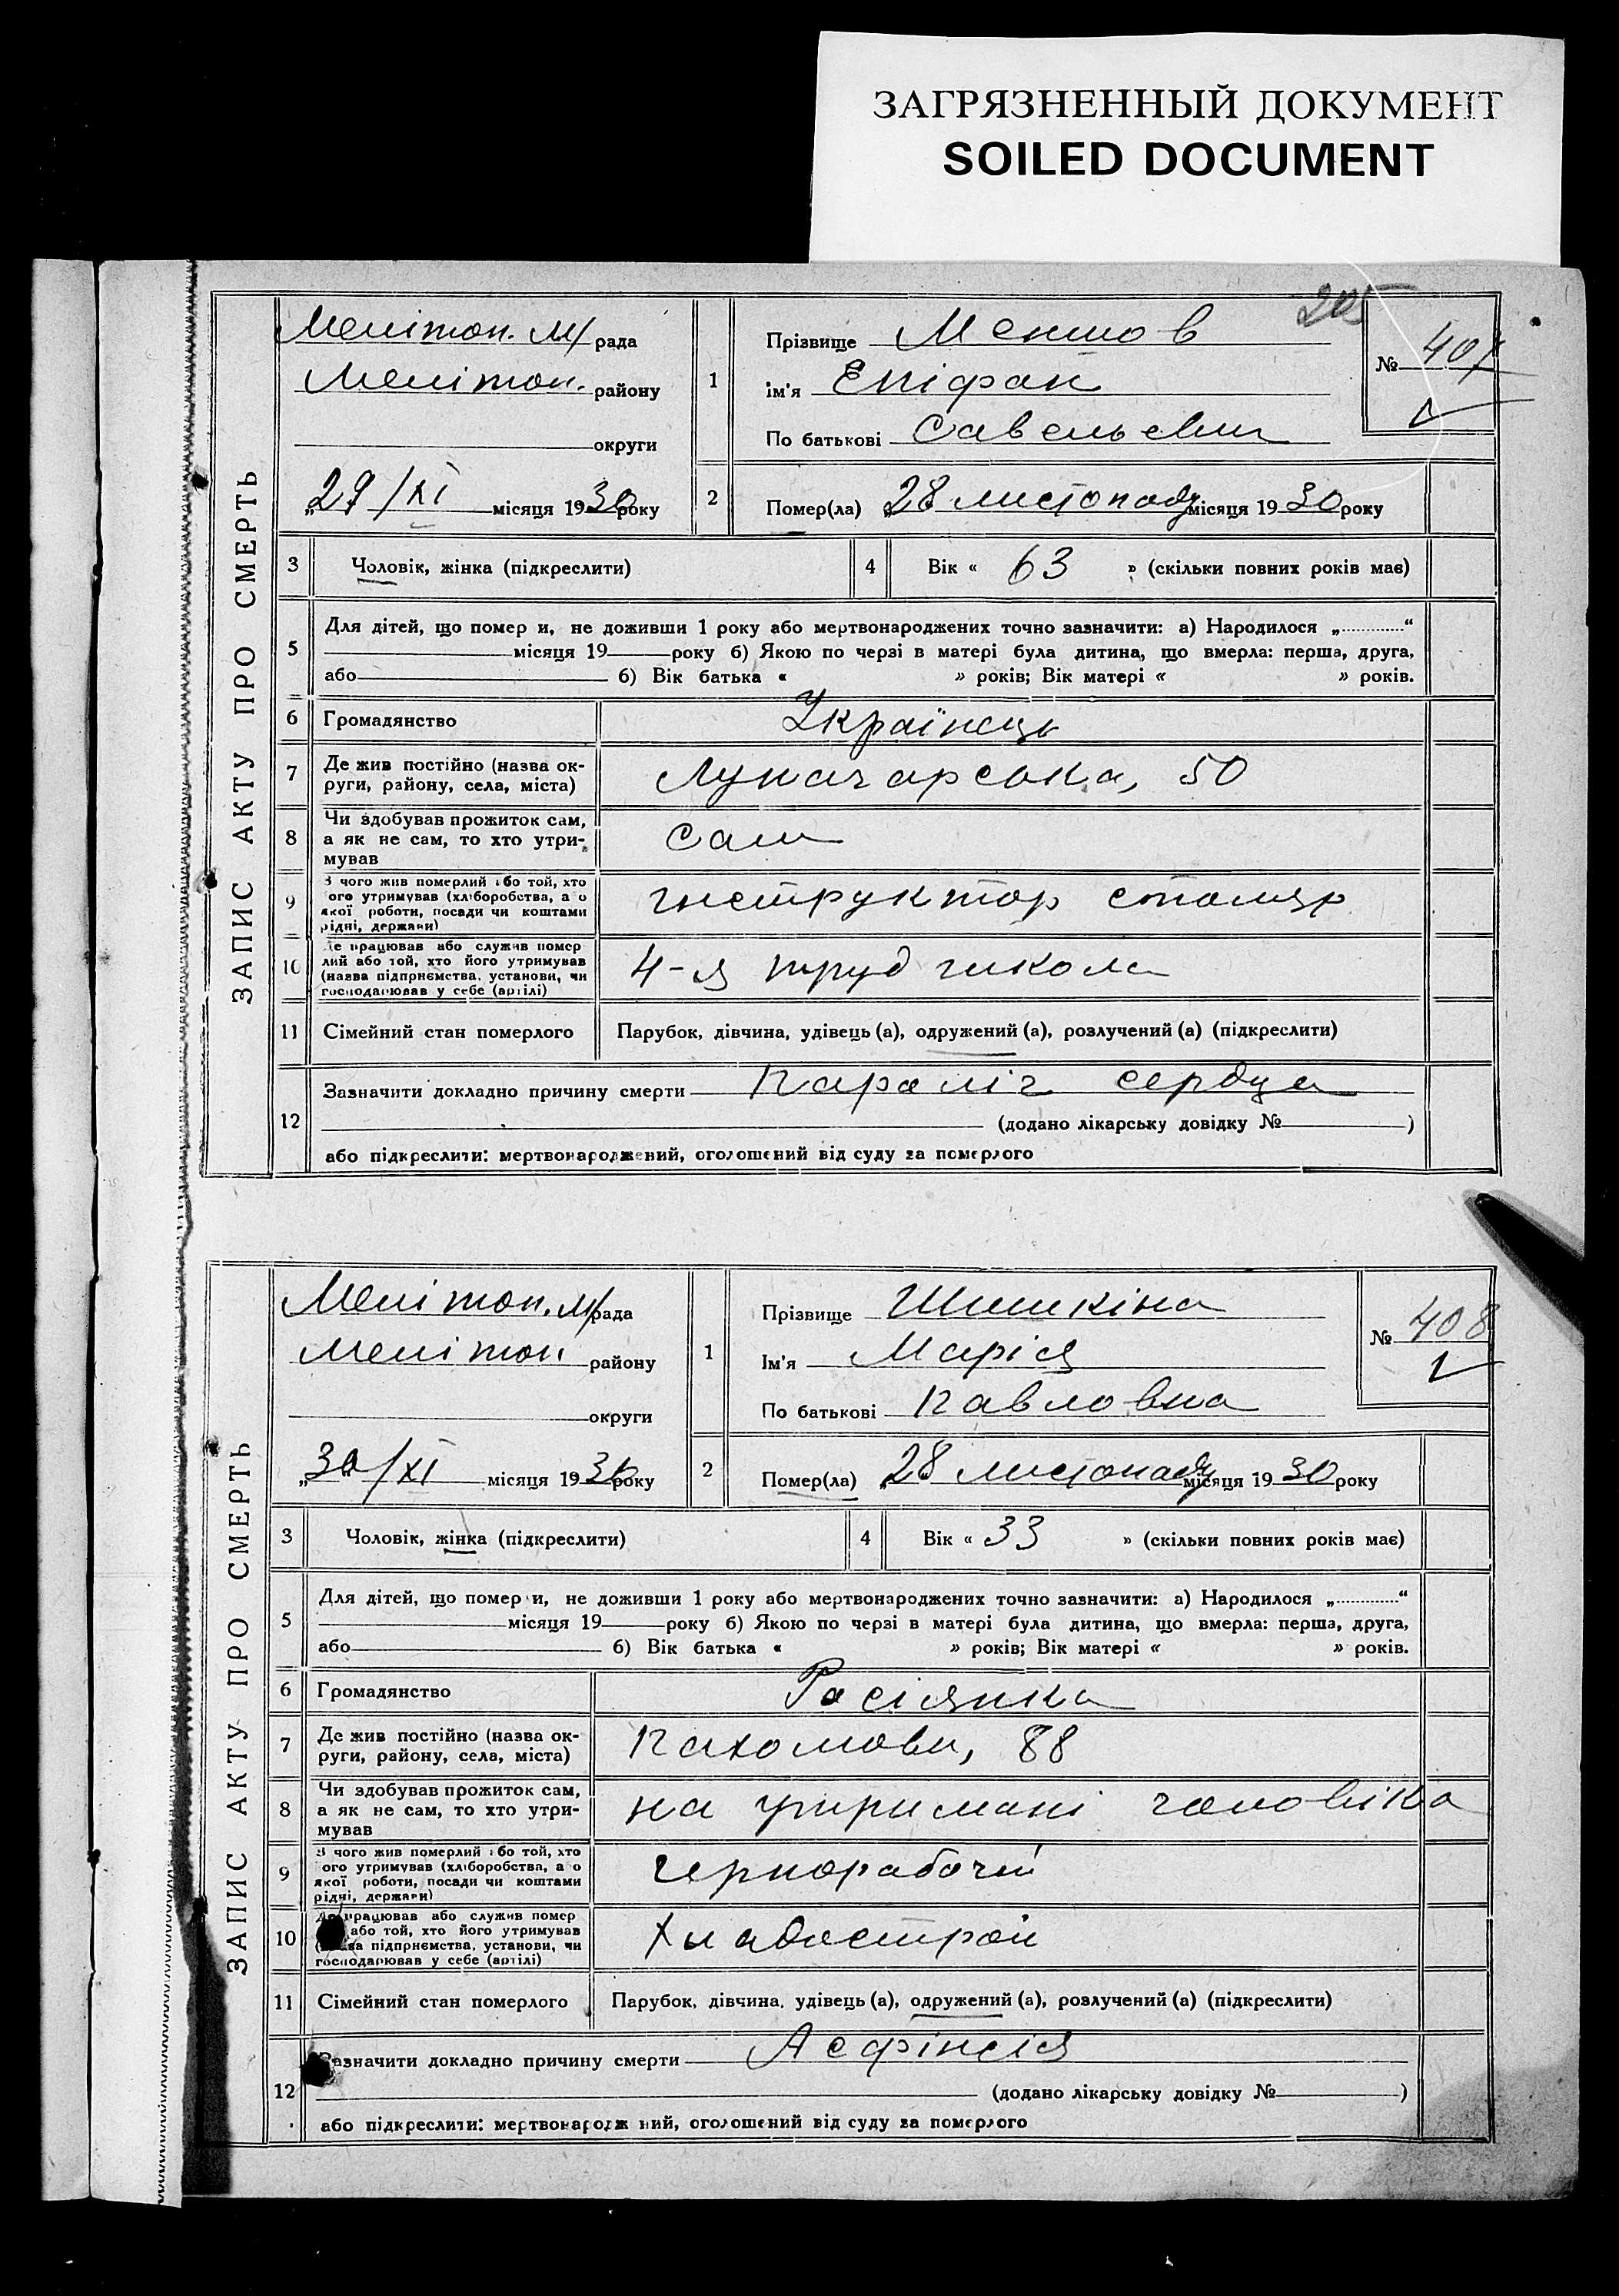 ЗАГРЯЗНЕННЫЙ ДОКУМЕНТ
SOILED DOCUMENT
205
ЗАПИС АКТУ ПРО СМЕРТЬ
Мелітоп. М/рада
Мелітоп. району
округи
„29/XI місяця 1930 року
1
Прізвище
Ім'я Епіфан
По батькові Савельевич
№ 407
2
Помер(ла) „28 листопаду місяця 1930 року
3 Чоловік, жінка (підкреслити)
4 Вік « 63 » (скільки повних років має)
5
Для дітей, що помер и, не доживши 1 року або мертвонароджених точно зазначити: а) Народилося „............“
місяця 19 року б) Якою по черзі в матері була дитина, що вмерла: перша, друга,
або б) Вік батька « » років; Вік матері « » років.
6 Громадянство Українець
7 Де жив постійно (назва ок-
руги, району, села, міста) Луначарська, 50
8 Чи здобував прожиток сам,
а як не сам, то хто утри-
мував сам
9 З чого жив померлий або той, хто
ого утримував (хліборобства, а о
якої роботи, посади чи коштами
рідні, держави) інструктор столяр
10 Де працював або служив помер
лий або той, хто його утримував
(назва підприємства, установи, чи
господарював у себе (артілі) 4-я труд школа
11 Сімейний стан померлого Парубок, дівчина, удівець (а), одружений (а), розлучений (а) (підкреслити)
12
Зазначити докладно причину смерти параліч сердца
(додано лікарську довідку № )
або підкреслити: мертвонароджений, оголошений від суду за померлого
ЗАПИС АКТУ ПРО СМЕРТЬ
Мелітоп. М/рада
Мелітоп району
округи
„30/XI місяця 1930 року
1
Прізвище Шишкіна
Ім'я Марія
По батькові Павловна
№ 408
2
Помер(ла) „28 листопаду місяця 1930 року
3 Чоловік, жінка (підкреслити)
4 Вік « 33 » (скільки повних років має)
5
Для дітей, що помер и, не доживши 1 року або мертвонароджених точно зазначити: а) Народилося „............“
місяця 19 року б) Якою по черзі в матері була дитина, що вмерла: перша, друга,
або б) Вік батька « » років; Вік матері « » років.
6 Громадянство Росіянка
7 Де жив постійно (назва ок-
руги, району, села, міста) Пахомови, 88
8 Чи здобував прожиток сам,
а як не сам, то хто утри-
мував на утримані чоловіка
9 З чого жив померлий або той, хто
ого утримував (хліборобства, а о
якої роботи, посади чи коштами
рідні, держави) чернорабочій
10 Де працював або служив помер
або той, хто його утримував
(назва підприємства, установи, чи
господарював у себе (артілі)
11 Сімейний стан померлого Парубок, дівчина, удівець (а), одружений (а), розлучений (а) (підкреслити)
12
Зазначити докладно причину смерти Асфіксія
(додано лікарську довідку № )
або підкреслити: мертвонародж ний, оголошений від суду за померлого